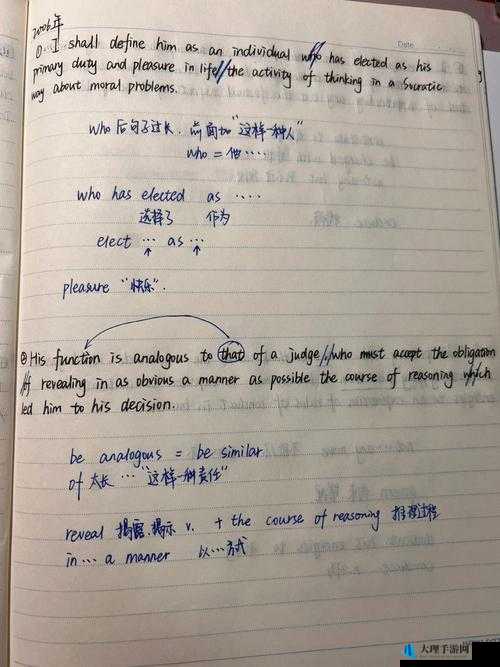 2006年
① I shall define him as an individual who has elected as his
primary duty and pleasure in life // the activity of thinking in a Socratic
way about moral problems.
Date
who 后句子过长，前面加“这样一种人”
who = 他……
who has elected as ……
选择了 作为
elect … as …
pleasure “快乐”.
② His function is analogous to that of a judge, // who must accept the obligation
// of revealing in as obvious a manner as possible the course of reasoning which
led him to his decision.
be analogous = be similar
of 太长 … “这样一种责任”
reveal 揭露.揭示 v. + the course of reasoning 推理过程
in … a manner 以…方式
大理手游网